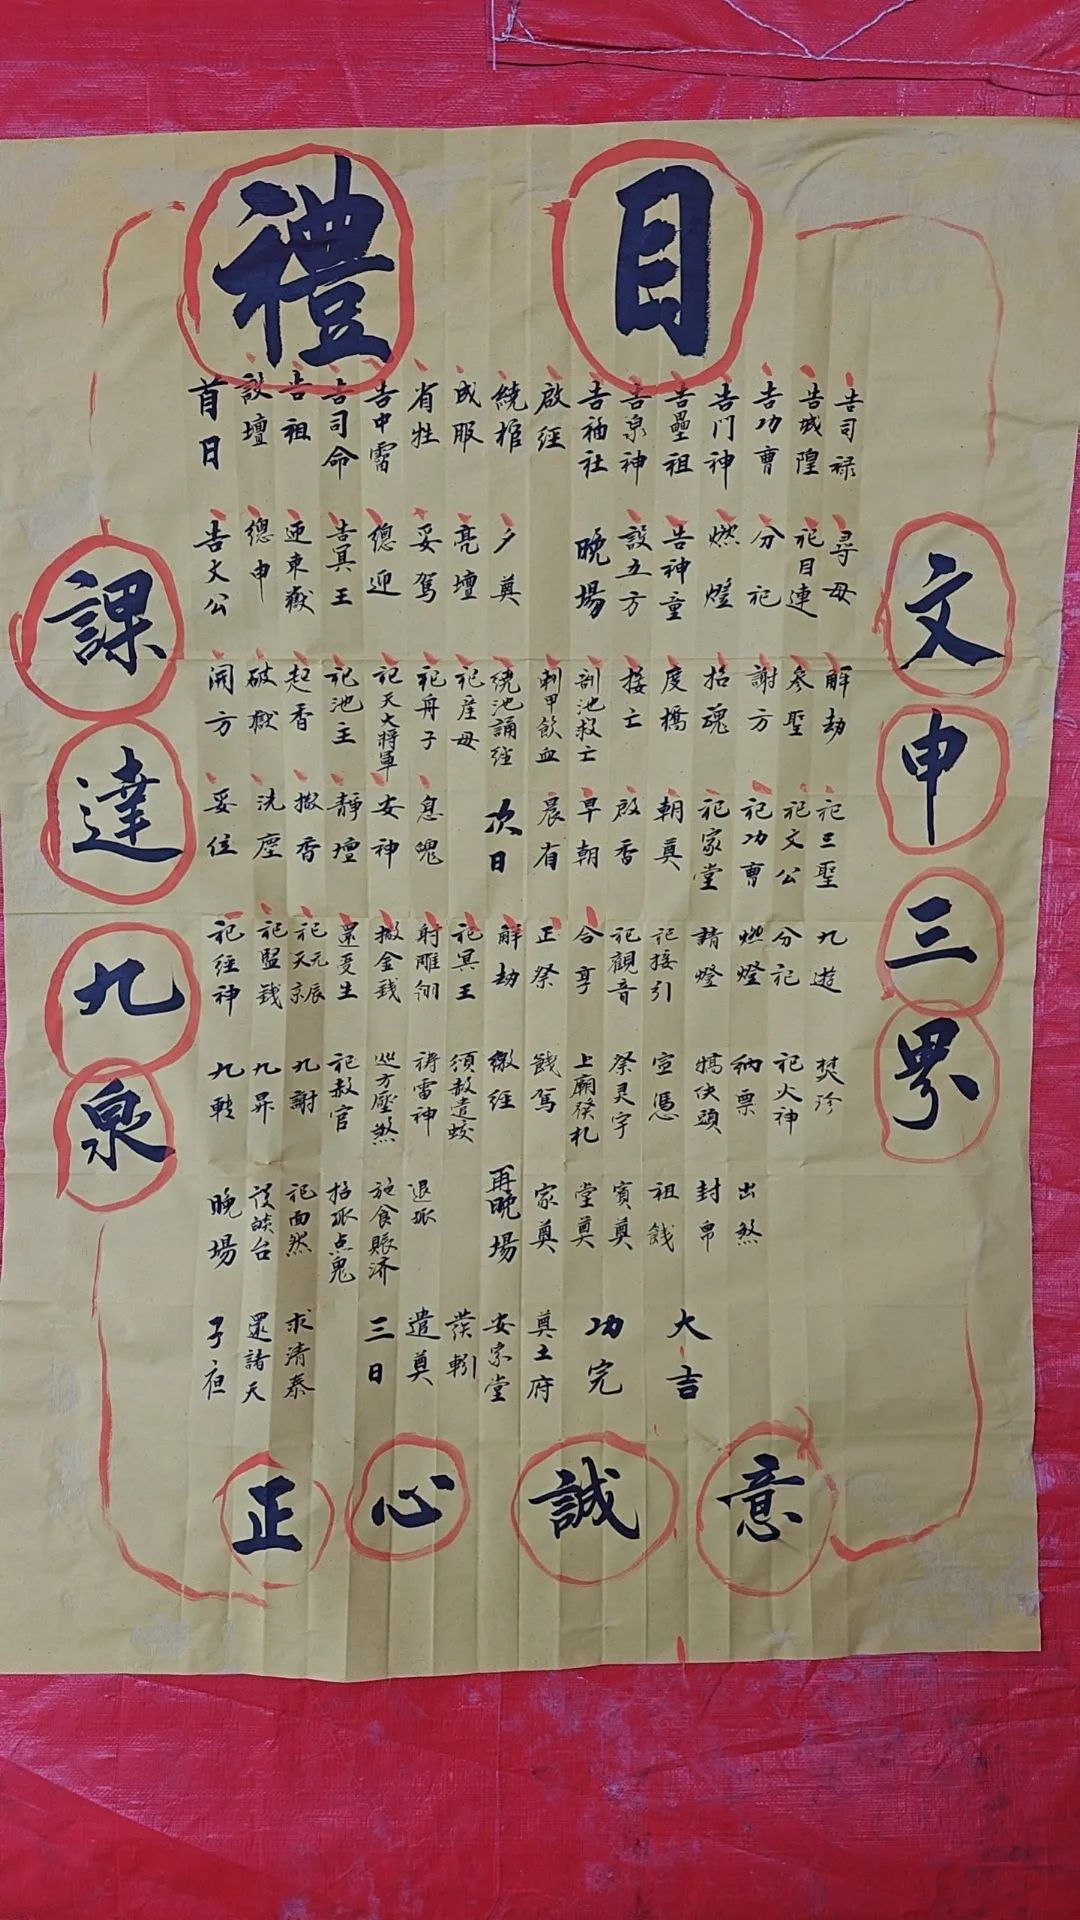 禮目
文申三界
課達九泉
首日 設壇 告祖 告司命 告中霤 省牲 成服 繞棺 啟經 告福社 告泉神 告壘祖 告门神 告功曹 告城隍 告司禄
告文公 總申 迎東嶽 告冥王 總迎 妥駕 亮壇 夕奠 晚場 設五方 告神童 燃燈 分祀 祀目連 尋母
開方 破獄 起香 祀池主 祀天大將軍 祀舟子 祀産母 繞池誦經 刺甲飲血 訓池救亡 接亡 度橋 招魂 謝方 參聖 解劫
妥位 洗塵 撤香 靜壇 安神 息魄 次日 晨省 早朝 啟香 朝奠 祀家堂 祀功曹 祀文公 祀三聖
祀经神 祀盟錢 還受生 撤金錢 射雕翎 祀冥王 解劫 正祭 合享 祀觀音 祀接引 請燈 燃燈 分祀 九遊
九轉 九昇 九謝 祀赦官 巡方壓煞 祷雷神 須赦遣蛟 繳经 餞駕 祭灵宇 宣憑 犒伕頭 納票 祀火神
晚場 祀面然 招孤点鬼 施食赈济 退孤 再晚場 家奠 堂奠 賓奠 祖餞 封帛 出煞
子夜 還諸天 求清泰 三日 遣奠 發軔 安宗堂 奠土府 功完 大吉
正心誠意